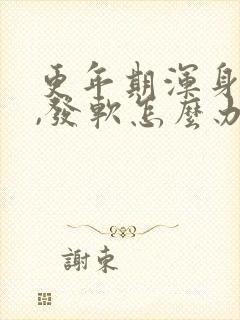 更年期渾身
,發軟怎麼办
謝束